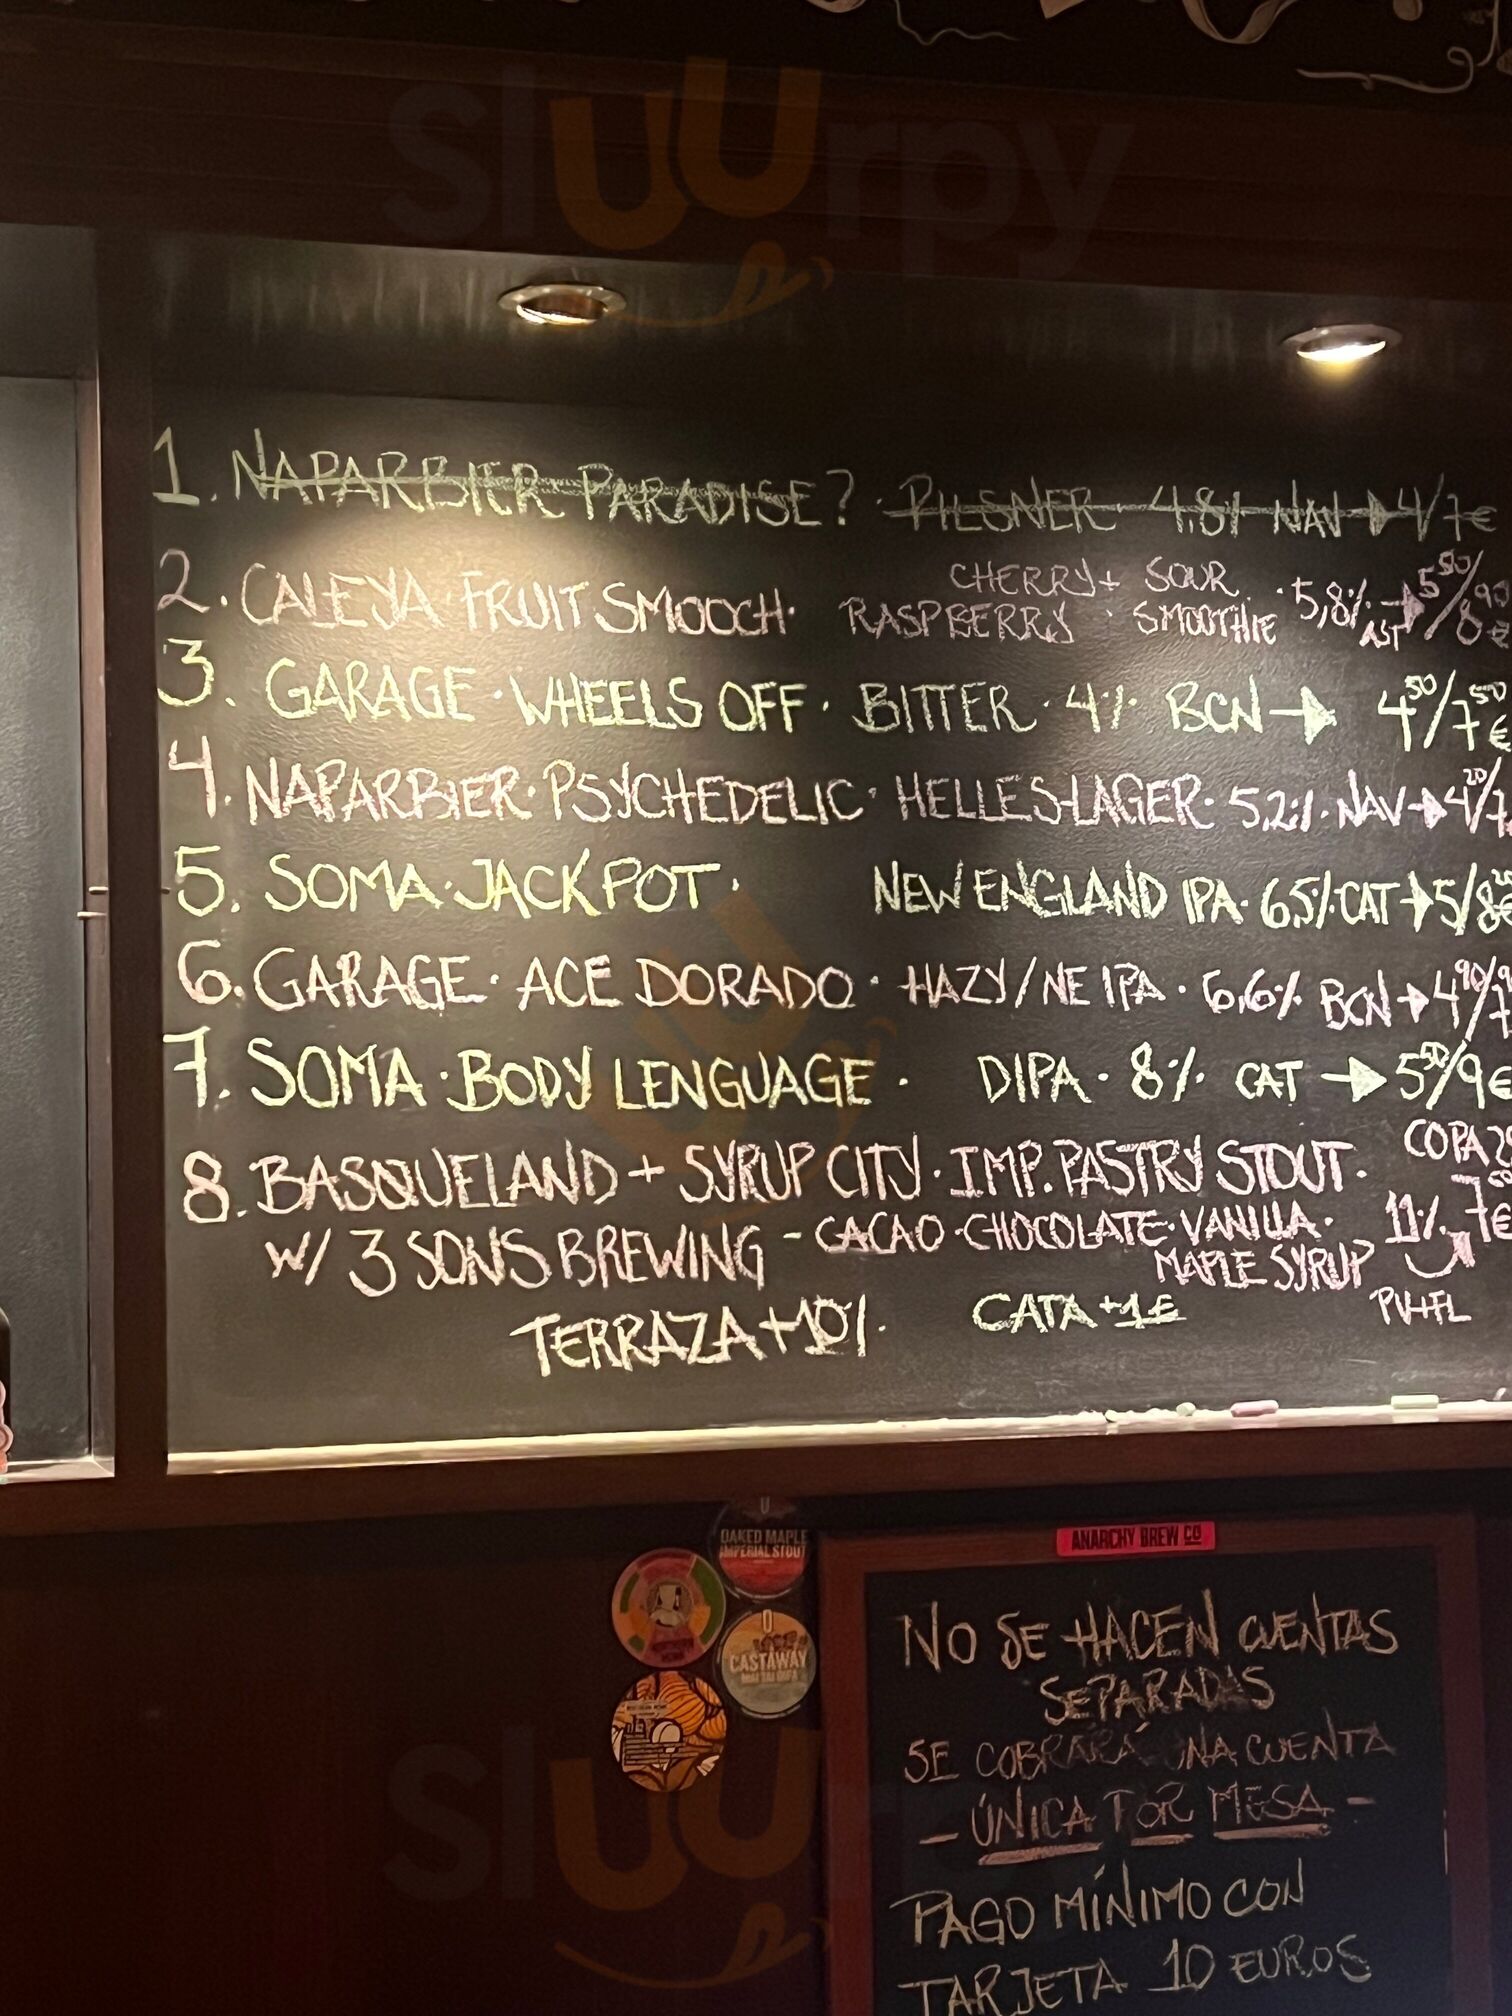 sluurpy
1. NAPARBIER PARADISE? · PILSNER · 4.8% NAV → 4/7€
2. CALEYA · FRUIT SMOOCH · CHERRY + RASPBERRY · SOUR SMOOTHIE · 5,8% AST → 5⁵⁰/8⁹⁰€
3. GARAGE · WHEELS OFF · BITTER · 4% BCN → 4⁵⁰/7⁵⁰€
4. NAPARBIER · PSYCHEDELIC · HELLES-LAGER · 5,2% · NAV → 4²⁰/7
5. SOMA · JACKPOT · NEW ENGLAND IPA · 6,5% · CAT → 5/8€
6. GARAGE · ACE DORADO · HAZY/NE IPA · 6,6% BCN → 4⁹⁰/7
7. SOMA · BODY LENGUAGE · DIPA · 8% CAT → 5⁵⁰/9€
8. BASQUELAND + SYRUP CITY · IMP. PASTRY STOUT · COPA
W/ 3 SONS BREWING - CACAO · CHOCOLATE · VANILLA · 11% 7€
MAPLE SYRUP
TERRAZA +10% · CATA +1€
ANARCHY BREW CO
OAKED MAPLE
IMPERIAL STOUT
CASTAWAY
NO SE HACEN CUENTAS
SEPARADAS
SE COBRARÁ UNA CUENTA
- ÚNICA POR MESA -
PAGO MÍNIMO CON
TARJETA 10 EUROS
sluurpy